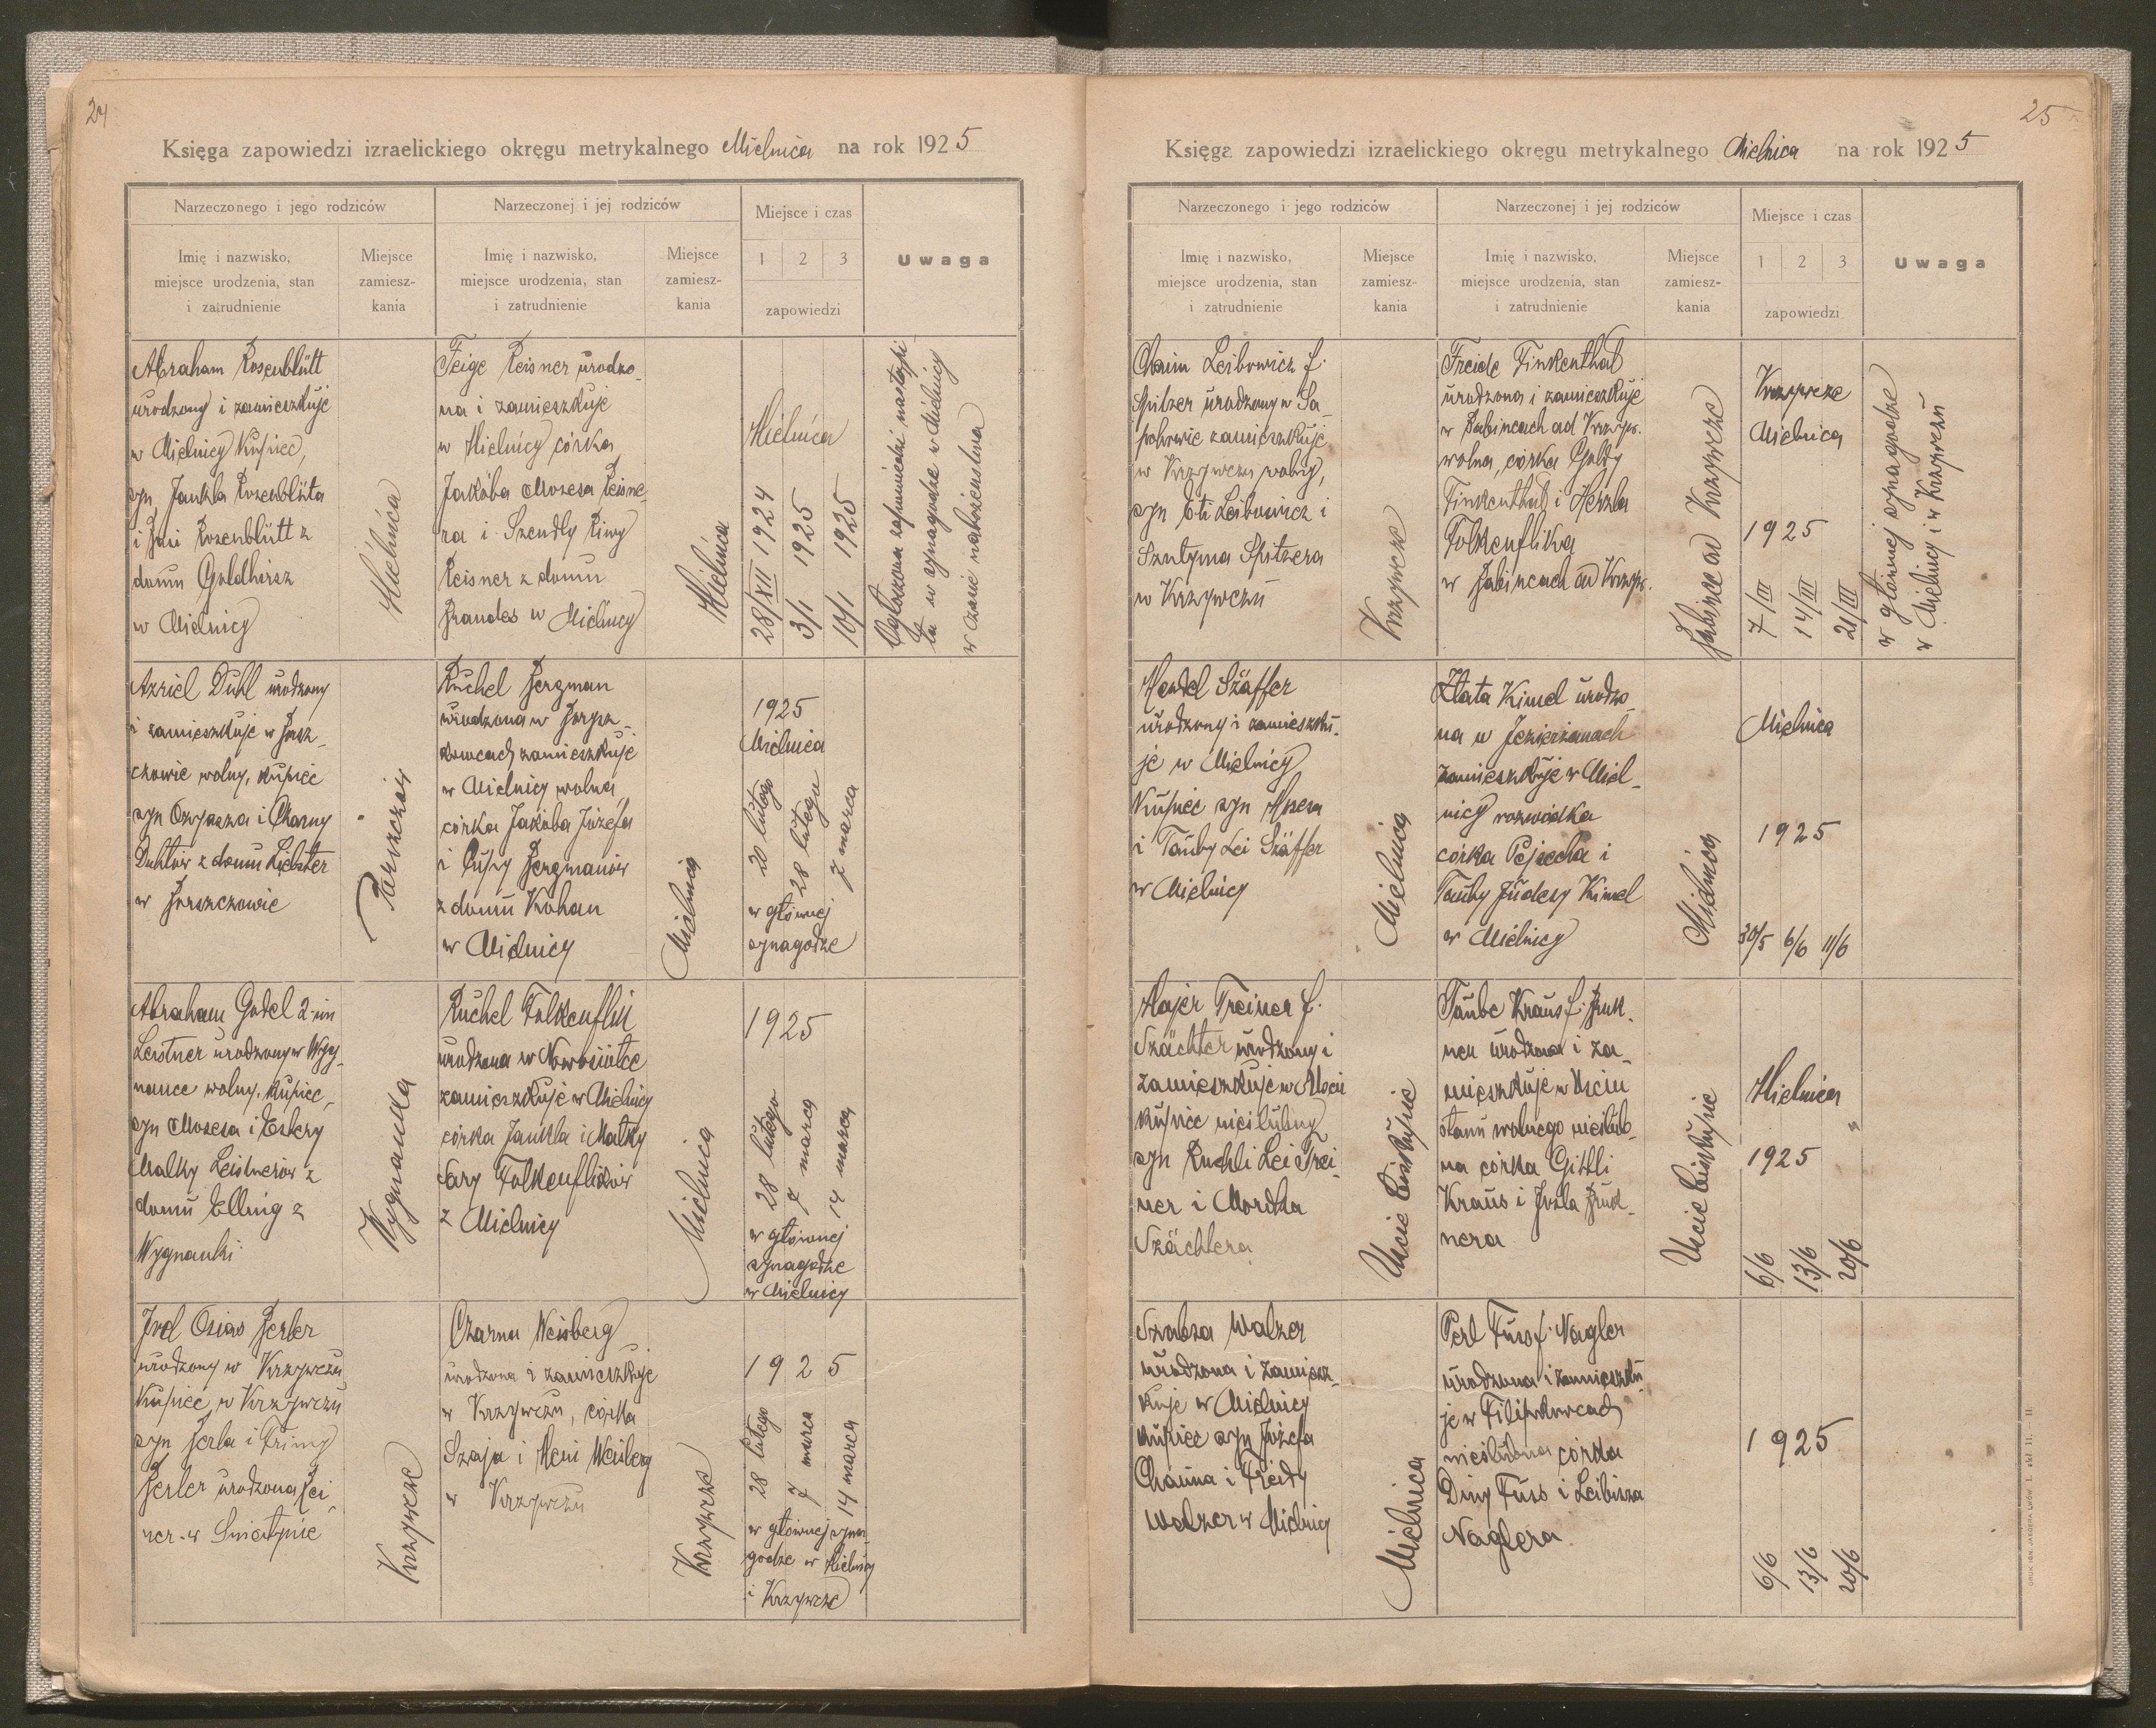 24
Księga zapowiedzi izraelickiego okręgu metrykalnego Mielnica na rok 1925
Narzeczonego i jego rodziców
Narzeczonej i jej rodziców
Miejsce i czas
Uwaga
Imię i nazwisko,
miejsce urodzenia, stan
i zatrudnienie
Miejsce
zamiesz-
kania
Imię i nazwisko,
miejsce urodzenia, stan
i zatrudnienie
Miejsce
zamiesz-
kania
1 2 3
zapowiedzi
Abraham Rosenblütt
urodzony i zamieszkuje
w Mielnicy Kupiec,
syn Jankla Rozenblüta
i Rosenblütt z
domu Goldhirsz
w Mielnicy
Mielnica
Feige Reisner urodzo-
na i zamieszkuje
w Mielnicy córka
Jakóba Mozesa Reisne-
ra i Szendly Riwy
Reisner z domu
Brandes w Mielnicy
Mielnica
Mielnica
28/XII 1924
3/1 1925
10/1 1925
Ogłoszona zapowiedzi nastąpi-
ła w synagodze w Mielnicy
w czasie nabożeństwa
Azriel Duhl urodzony
i zamieszkuje w Borsz-
czowie wolny, kupiec
syn Ozyasza i Charny
Duhlów z domu Lichter
w Borszczowie
Borszczów
Ruchel Bergman
urodzona w
kowcach zamieszkuje
w Mielnicy wolna,
córka Jakóba Józefa
i Bergmanów
z domu Kohan
w Mielnicy
Mielnica
1925
Mielnica
20 lutego
28 lutego
7 marca
w głównej
synagodze
Abraham Godel 2-im
Leistner urodzony w Wyg-
nance wolny, kupiec,
syn Mozesa i Estery
Malky Leistnerów z
domu Elling z
Wygnanki
Wygnanka
Ruchel Folkenflik
urodzona w Nowosiółce
zamieszkuje w Mielnicy
córka Jankla i Malky
Sary Folkenflików
z Mielnicy
Mielnica
1925
28 lutego
7 marca
14 marca
w głównej
synagodze
w Mielnicy
Joel Osias Ferber
urodzony w Krzywczu
Kupiec, w Krzywczu
syn Berla i Frimy
Ferber urodzona
ner w Sniatynie
Krzywcze
Czarna Weisberg
urodzona i zamieszkuje
w Krzywczu, córka
Szaja i Heni Weisberg
w Krzywczu
Krzywcze
1925
28 lutego
7 marca
14 marca
w głównej syna-
godze w Mielnicy
i Krzywcze
25
Księga zapowiedzi izraelickiego okręgu metrykalnego Mielnica na rok 1925
Narzeczonego i jego rodziców
Narzeczonej i jej rodziców
Miejsce i czas
Uwaga
Imię i nazwisko,
miejsce urodzenia, stan
i zatrudnienie
Miejsce
zamiesz-
kania
Imię i nazwisko,
miejsce urodzenia, stan
i zatrudnienie
Miejsce
zamiesz-
kania
1 2 3
zapowiedzi
Chaim Leibowicz f.
Spitzer urodzony w Sa-
pohowie zamieszkuje
w Krzywczu wolny,
syn Leibowicz i
Spitzera
w Krzywczu
Krzywcze
Freide Finkenthal
urodzona i zamieszkuje
w Babincach ad Krzyw.
wolna, córka Goldy
Finkenthal i Herzla
Folkenflika
w Babincach ad Krzyw.
Babince ad Krzywcze
Krzywcze
Mielnica
1925
7/III
14/III
21/III
w głównej synagodze
w Mielnicy i w Krzywczu
Mendel Szäffer
urodzony i zamieszku-
je w Mielnicy
Kupiec syn Mozesa
i Tauby Lei Szäffer
w Mielnicy
Mielnica
Zlata Kimel urodzo-
na w Jezierzanach
zamieszkuje w Miel-
nicy rozwódka
córka Pejsecha i
Tauby Judesy Kimel
w Mielnicy
Mielnica
Mielnica
1925
30/5 6/6 11/6
Majer Treiner f.
Szächter urodzony i
zamieszkuje w Uściu
kupiec nieślubny
syn Ruchli Lei Trei-
ner i Mordka
Szächtera
Uście Biskupie
Taube Kraus f. Bruk-
ner urodzona i za-
mieszkuje w Uściu
stanu wolnego nieślub-
na córka Gittli
Kraus i Jozla Bruk-
nera
Uście Biskupie
Mielnica
1925
6/6
13/6
20/6
Szabsa Walzer
urodzona i zamiesz-
kuje w Mielnicy
kupiec syn Józefa
Chaima i Freidy
Walzer w Mielnicy
Mielnica
Perl Fuss f. Nagler
urodzona i zamieszku-
je w Filipkowcach
nieślubna córka
Diny Fuss i Leibisza
Naglera
1925
6/6
13/6
20/6